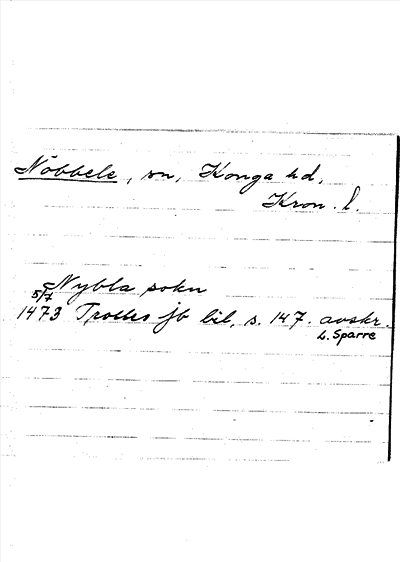 Nöbbele, sn, Konga hd,
Kron. l.
Nybla sokn
5/7
1473 Trolles jb bil, s. 147. avskr.
L. Sparre